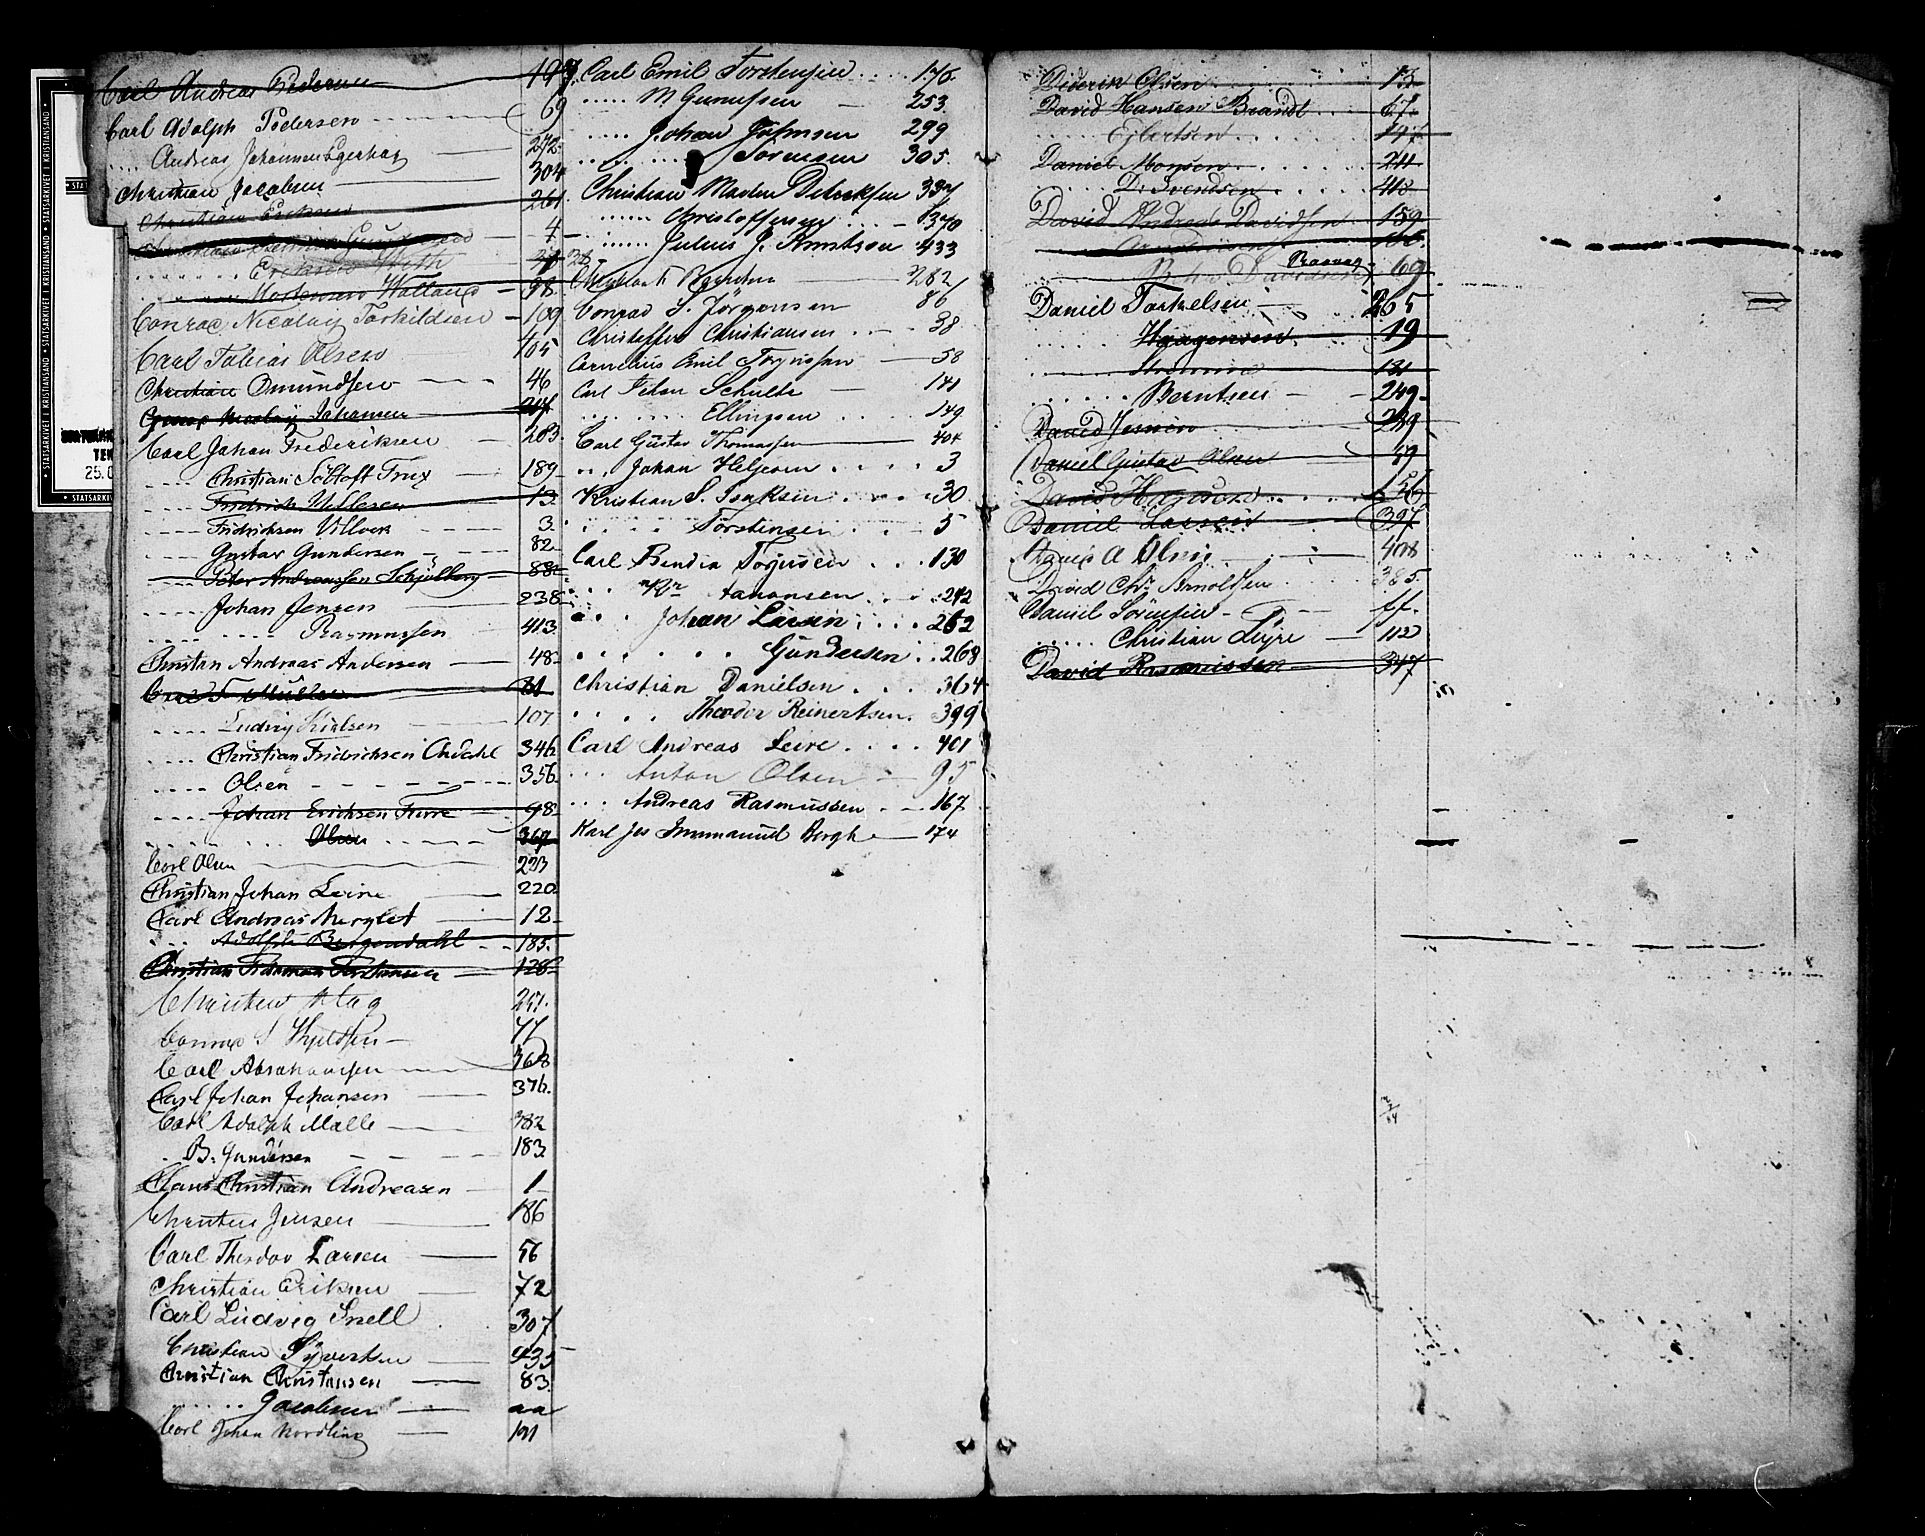 Carl Andreas Pedersen 197
Carl Adolph Pedersen 69
Andreas Johannesen Egerhag 272
Christian Jacobsen 304
Christian Eriksen 261
4
Eriksen With
Mortensen Walland 98
Conrad Nicolay Torkildsen 109
Carl Tobias Olsen 105
Christian Omundsen 46
Nicolay Johansen
Carl Johan Frederiksen 203
Christian Schloft Trux 189
Fredrich Villesen 13
Fridrichsen Ullver 3
Gustav Gundersen 82
Peter Andreassen Schjølberg 88
Johan Jensen 238
Rasmussen 413
Christian Andreas Andersen 48
Carl F Müller 81
Ludvig Kielsen 107
Christian Fridrichsen Ordahl 346
Olsen 356
Johan Erichsen Furre 98
Olsen 367
Carl Olsen 223
Christian Johan Leire 220
Carl Andreas 12
Adolph Bergendahl 185
Christian 128
Christen 257
Conrad S Kjeldsen 77
Carl Abrahamsen 368
Carl Johan Johansen 376
Carl Adolph Malle 382
B. Gundersen 183
Claus Christian Andreasen 1
Christen Jensen 186
Carl Theodor Larsen 56
Christian Eriksen 72
Carl Ludvig Snell 307
Christian Syvertsen 435
Christian Christansen 83
Jacobsen aa
Carl Johan Nordling 191
Carl Emil Torstensen 176
M Gunufsen 253
Johan Johnsen 299
Sörensen 305
Christian Martin Didriksen 337
Christoffersen 370
Julius J. Knutson 433
282
Conrad S. Jörgensen 86
Christoffer Christiansen 38
Cornelius Emil Torgersen 58
Carl Johan Schultz 141
Ellingsen 149
Carl Gustav Thomassen 404
Johan Helgesen 3
Kristian S. Isaksen 30
Torstensen 5
Carl Bendix Torjusen 130
Johansen 242
Johan Larsen 262
Gundersen 268
Christian Danielsen 364
Theoder Reinertsen 399
Carl Andreas Leire 401
Anton Olsen 95
Andreas Rasmussen 167
Karl Jos Immanuel Borgh 174
Diderik Olsen 13
David Hansen Brandt 67
Eilertsen 147
Daniel Monsen 211
D. Svendsen 418
David Andreas Davidsen 159
Davidsen 69
Daniel Torkelsen 265
Haagensen 19
181
Berntsen 249
David Jensen 229
Daniel Gustav Olsen 49
David Hansen 156
Daniel Larsen 397
Daniel A Olsen 408
David Chr. Arnoldsen 385
Daniel Sörensen ff.
Christian Leyre 112
David Rasmussen 347